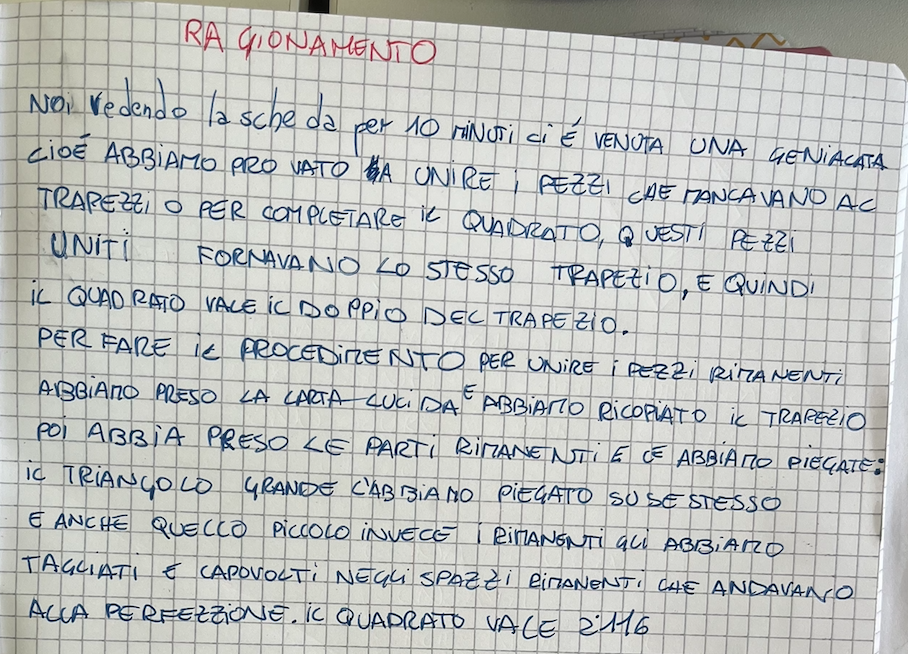 RAGIONAMENTO
NOi vedendo la scheda per 10 MiNUTi ci É VENUTA UNA GENiACATA
CIOÉ ABBiAMO PROVATO A UNIRE i PEZZI CHE MANCAVANO AL
TRAPEZZiO PER COMPLETARE iL QUADRATO, QUESTI PEZZI
UNiTi FORNAVANO LO STESSO TRAPEZiO, E QUiNDi
iL QUADRATO VALE iL DOPPiO DEL TRAPEZiO.
PER FARE iL PROCEDiMENTO PER UNiRE i PEZZi RiMANENTi
ABBiAMO PRESO LA CARTA LUCiDA E ABBiAMO RiCOPiATO iL TRAPEZiO
POi ABBiA PRESO LE PARTi RiMANENTi E LE ABBiAMO PiEGATE:
iL TRiANGOLO GRANDE L'ABBiAMO PiEGATO SU SE STESSO
E ANCHE QUELLO PiCCOLO iNVECE i RiMANENTi GLi ABBiAMO
TAGLiATi E CAPOVOLTi NEGLi SPAZZi RiMANENTi CHE ANDAVANO
ALLA PERFEZZiONE. iL QUADRATO VALE 2116